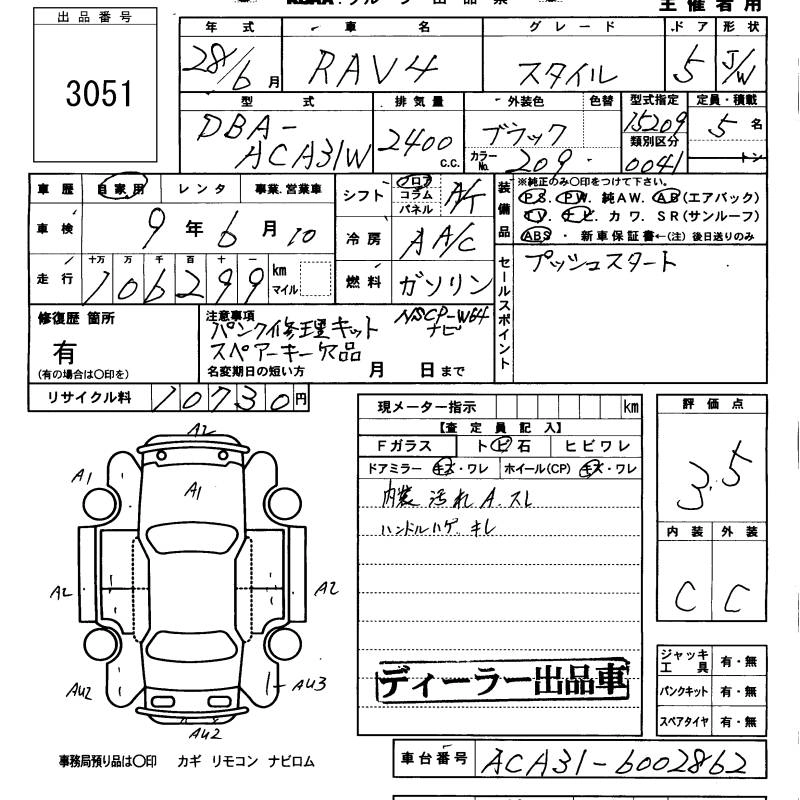 主催者用
出品番号
3051
年式 車名 グレード ドア 形状
28/6月 RAV4 スタイル 5 J/W
型式 排気量 外装色 色替 型式指定 定員・積載
DBA-ACA31W 2400c.c. ブラック 15209 5名
カラーNo. 209 類別区分 0041 トン
車歴 自家用 レンタ 事業.営業車
車検 9年6月10
走行 十万 万 千 百 十 一
106299 km マイル
シフト フロア コラム パネル A/T
冷房 AA/C
燃料 ガソリン
装備品
※純正のみ○印をつけて下さい。
PS. PW. 純AW. AB(エアバック)
TV. ナビ カワ. SR(サンルーフ)
ABS ・ 新車保証書←(注) 後日送りのみ
セールスポイント
プッシュスタート
修復歴 箇所
有
(有の場合は○印を)
注意事項
パンク修理キット NSCP-W64
ナビ
スペアーキー欠品
名変期日の短い方 月 日まで
リサイクル料 10730円
現メーター指示 km
【査定員記入】
Fガラス トビ石 ヒビワレ
ドアミラー キズ・ワレ ホイール(CP) キズ・ワレ
内装 汚れ A.スレ
ハンドルハゲ キレ
ディーラー出品車
評価点
3.5
内装 外装
C C
ジャッキ工具 有・無
パンクキット 有・無
スペアタイヤ 有・無
A2
A1
A1
A2
A2
AU2
AU3
AU2
事務局預り品は○印 カギ リモコン ナビロム
車台番号 ACA31-6002862